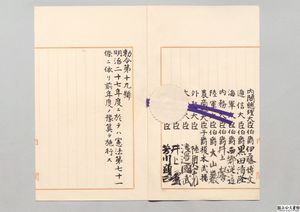 内閣總理大臣伯爵伊藤博文
遞信大臣伯爵黒田清隆
海軍大臣伯爵西郷從道
内務大臣伯爵井上馨
陸軍大臣伯爵大山巖
農商務大臣子爵榎本武揚
外務大臣
大臣渡邊國武
井上毅
芳川顯正
勅令第十九號
明治二十七年度ニ於テハ憲法第七十一
條ニ依リ前年度ノ豫算ヲ施行ス